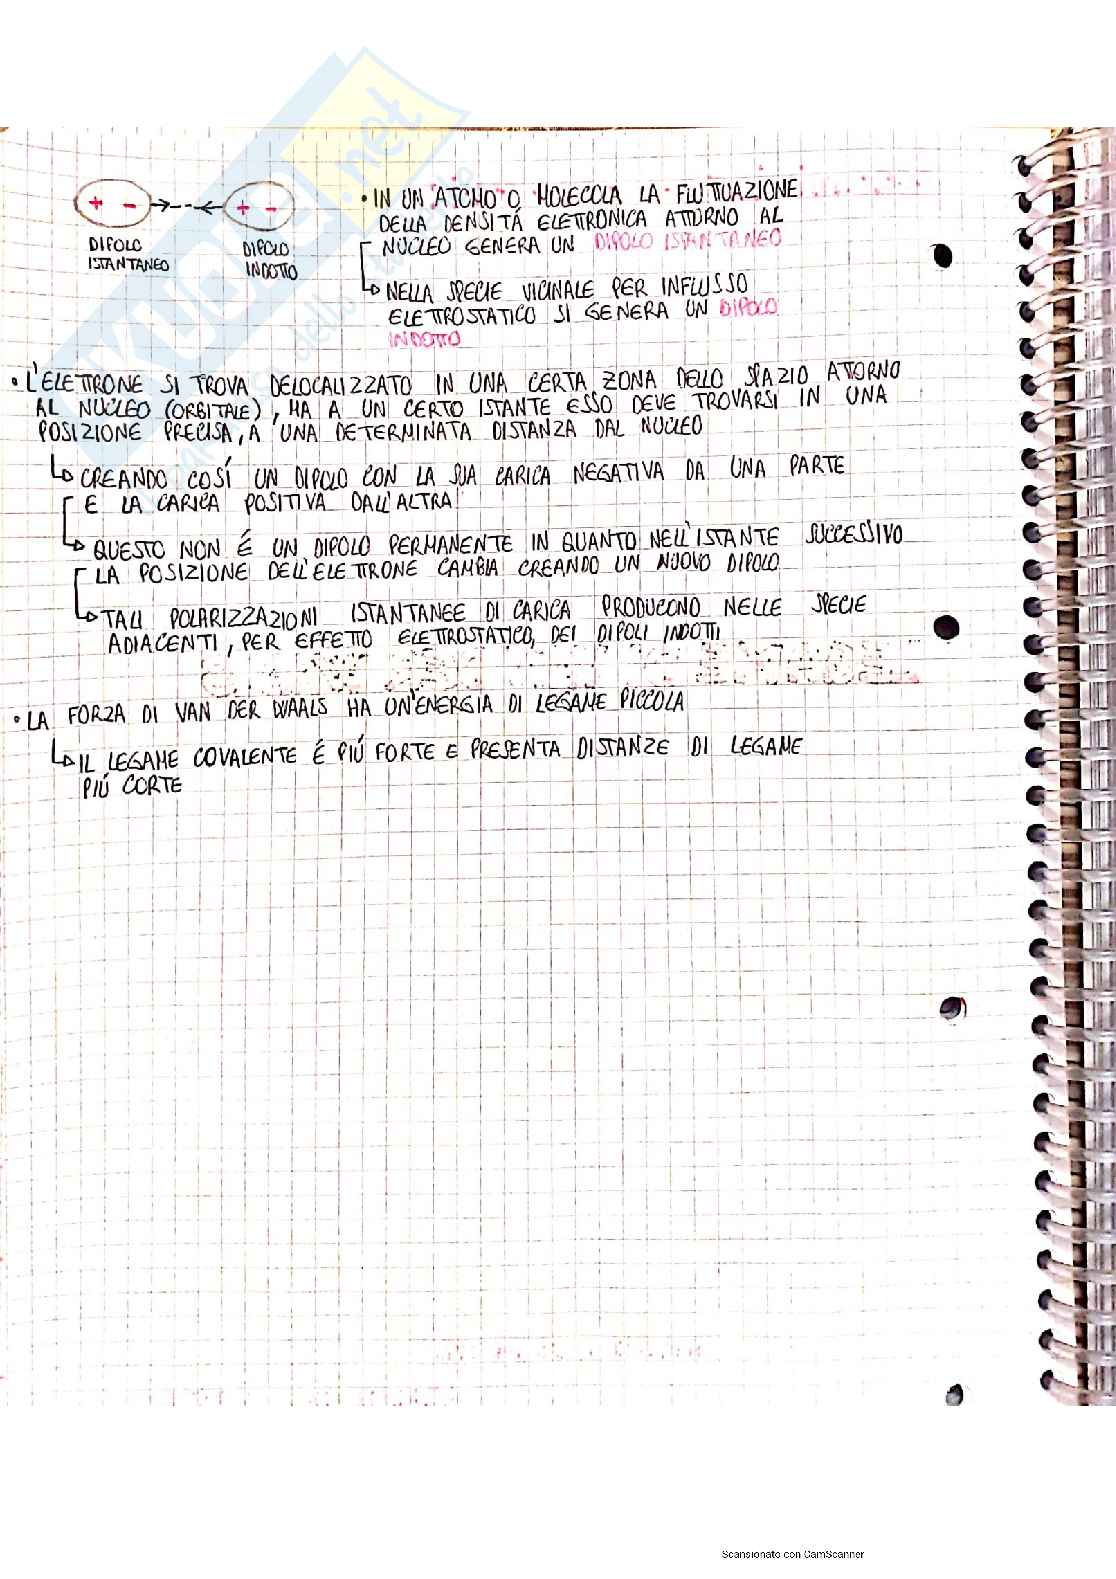 + - + -
DIPOLO
ISTANTANEO
DIPOLO
INDOTTO
• IN UN ATOMO O MOLECOLA LA FLUTTUAZIONE
DELLA DENSITÁ ELETTRONICA ATTORNO AL
NUCLEO GENERA UN DIPOLO ISTANTANEO
NELLA SPECIE VICINALE PER INFLUSSO
ELETTROSTATICO SI GENERA UN DIPOLO
INDOTTO
• L'ELETTRONE SI TROVA DELOCALIZZATO IN UNA CERTA ZONA DELLO SPAZIO ATTORNO
AL NUCLEO (ORBITALE), MA A UN CERTO ISTANTE ESSO DEVE TROVARSI IN UNA
POSIZIONE PRECISA, A UNA DETERMINATA DISTANZA DAL NUCLEO
CREANDO COSÍ UN DIPOLO CON LA SUA CARICA NEGATIVA DA UNA PARTE
E LA CARICA POSITIVA DALL'ALTRA
QUESTO NON É UN DIPOLO PERMANENTE IN QUANTO NELL'ISTANTE SUCCESSIVO
LA POSIZIONE DELL'ELETTRONE CAMBIA CREANDO UN NUOVO DIPOLO
TALI POLARIZZAZIONI ISTANTANEE DI CARICA PRODUCONO NELLE SPECIE
ADIACENTI, PER EFFETTO ELETTROSTATICO, DEI DIPOLI INDOTTI
• LA FORZA DI VAN DER WAALS HA UN'ENERGIA DI LEGAME PICCOLA
IL LEGAME COVALENTE É PIÚ FORTE E PRESENTA DISTANZE DI LEGAME
PIÚ CORTE
Scansionato con CamScanner